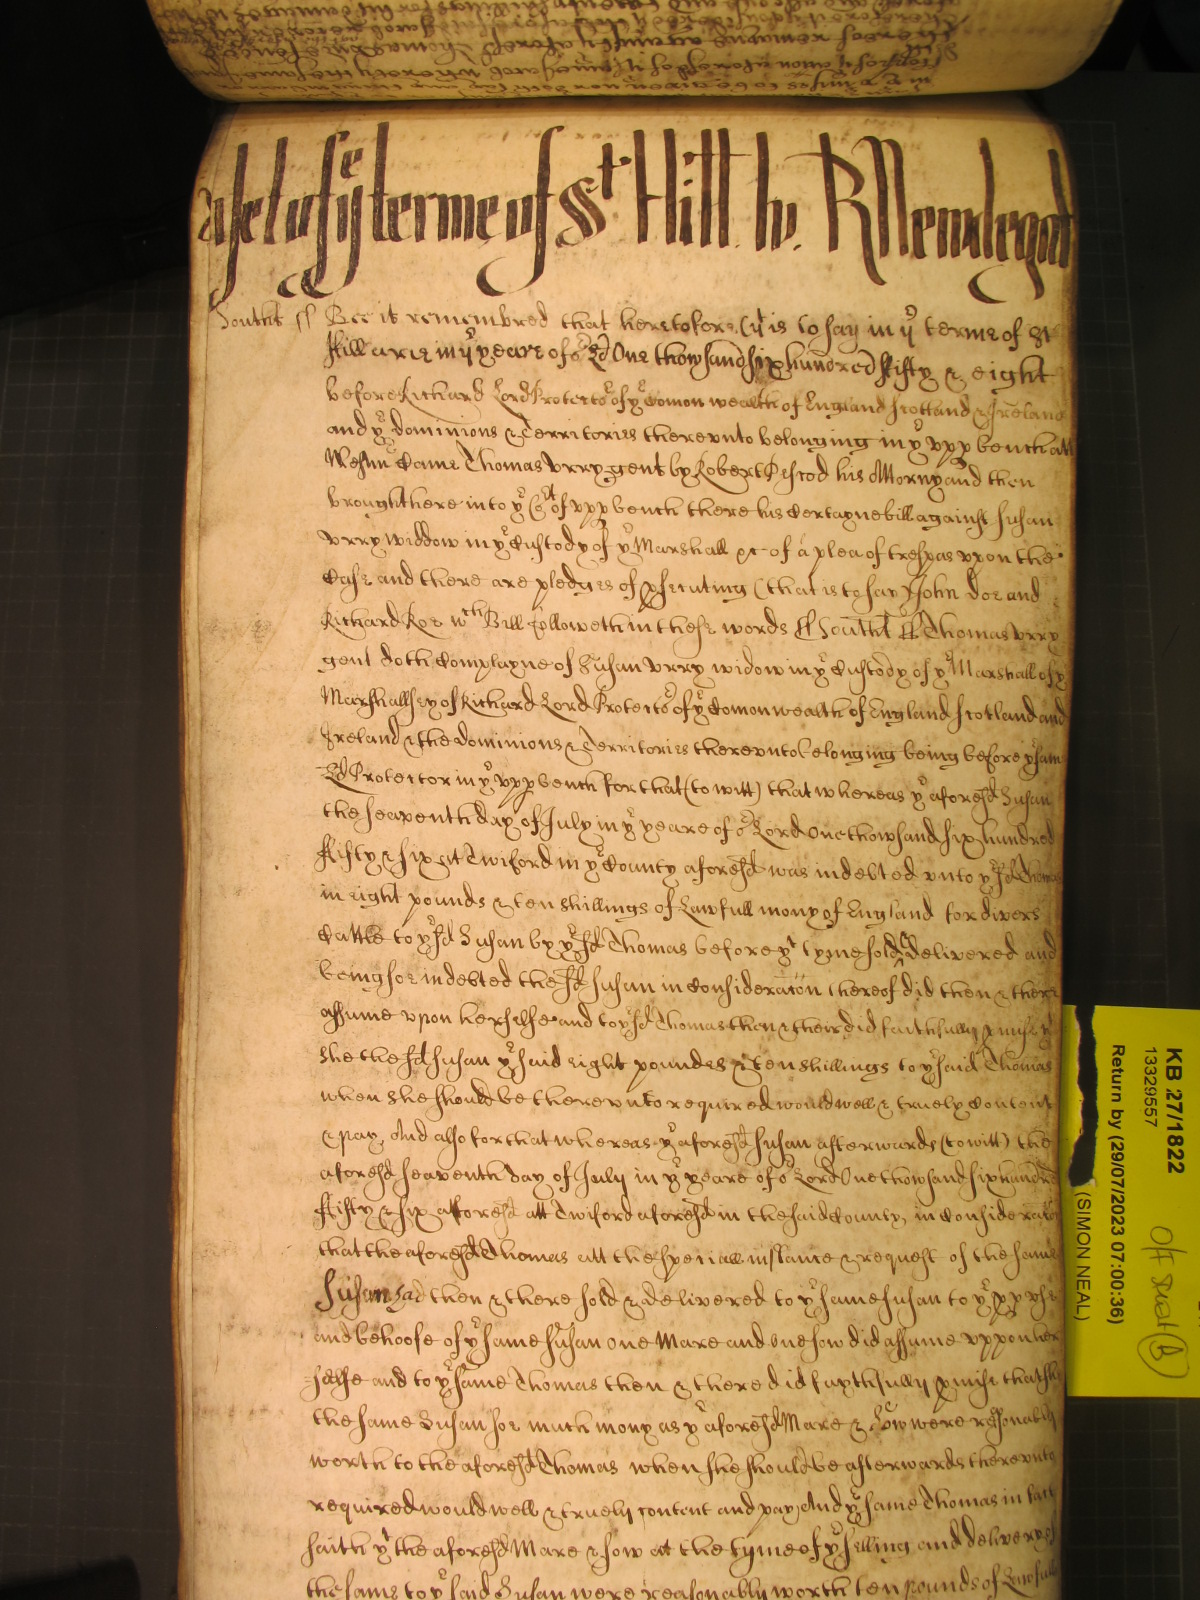 as yet of ye terme of St Hill. by. R Newdegat
Southt ss Bee it remembred that heretofore (yt is to say in ye terme of St
Hillarie in ye yeare of or Ld One thowsand six hundred fifty & eight
before Richard Lord Protector of ye Comon wealth of England Scotland & Ireland
and ye dominions & Territories therevnto belonging in ye vpp bench att
Westmr Came Thomas Vrry gent by Robert his Attorny and then
brought here into ye Cort of vpp bench there his Certayne bill against Susan
Vrry widdow in ye Custody of ye Marshall &c of a plea of trespas vpon the
Case and there are pledges of psecuting (that is to say) John Doe and
Richard Roe wch Bill followeth in these words ss Southt ss Thomas Vrry
gent doth Complayne of Susan Vrry widow in ye Custody of ye Marshall of ye
Marshallsey of Richard Lord Protector of ye Comonwealth of England Scotland and
Ireland & the dominions & Territories therevnto belonging being before ye same
Ld Protector in ye vpp bench for that (to witt) that whereas ye aforesd Susan
the seaventh day of July in ye yeare of or Lord One thowsand six hundred
fifty & six at Twiford in ye County aforesd was indebted vnto ye sd Thomas
in eight pounds & ten shillings of Lawfull mony of England for divers
Cattle to ye sd Susan by ye sd Thomas before yt tyme sold & delivered and
being soe indebted the sd Susan in Consideration thereof did then & there
assume vpon herselfe and to ye sd Thomas then & their did faithfully pmise yt
she the sd Susan ye said eight poundes & ten shillings to ye said Thomas
when she should be therevnto required would well & truely Content
& pay, And also for that whereas ye aforesd Susan afterwards (to witt) the
aforesd seaventh day of July in ye yeare of or Lord One thowsand six hundred
fifty & six aforesd att Twiford aforesd in the said County, in Consideration
that the aforesd Thomas att the speciall instance & request of the same
Susan had then & there sold & delivered to ye same Susan to ye pp vse
and behoofe of ye same Susan one Mare and one sow did assume vppon her
selfe and to ye same Thomas then & there did faythfully pmise that she
the same Susan soe much mony as ye aforesd Mare & Sow were resonably
worth to the aforesd Thomas when she should be afterwards therevnto
required would well & truely content and pay, And ye same Thomas in fact
saith yt the aforesd Mare & sow at the tyme of ye selling and delivery of
the same to ye said Susan were reasonably worth ten pounds of Lawfull
KB 27/1822
13329557
Return by (29/07/2023 07:00:36)
(SIMON NEAL)